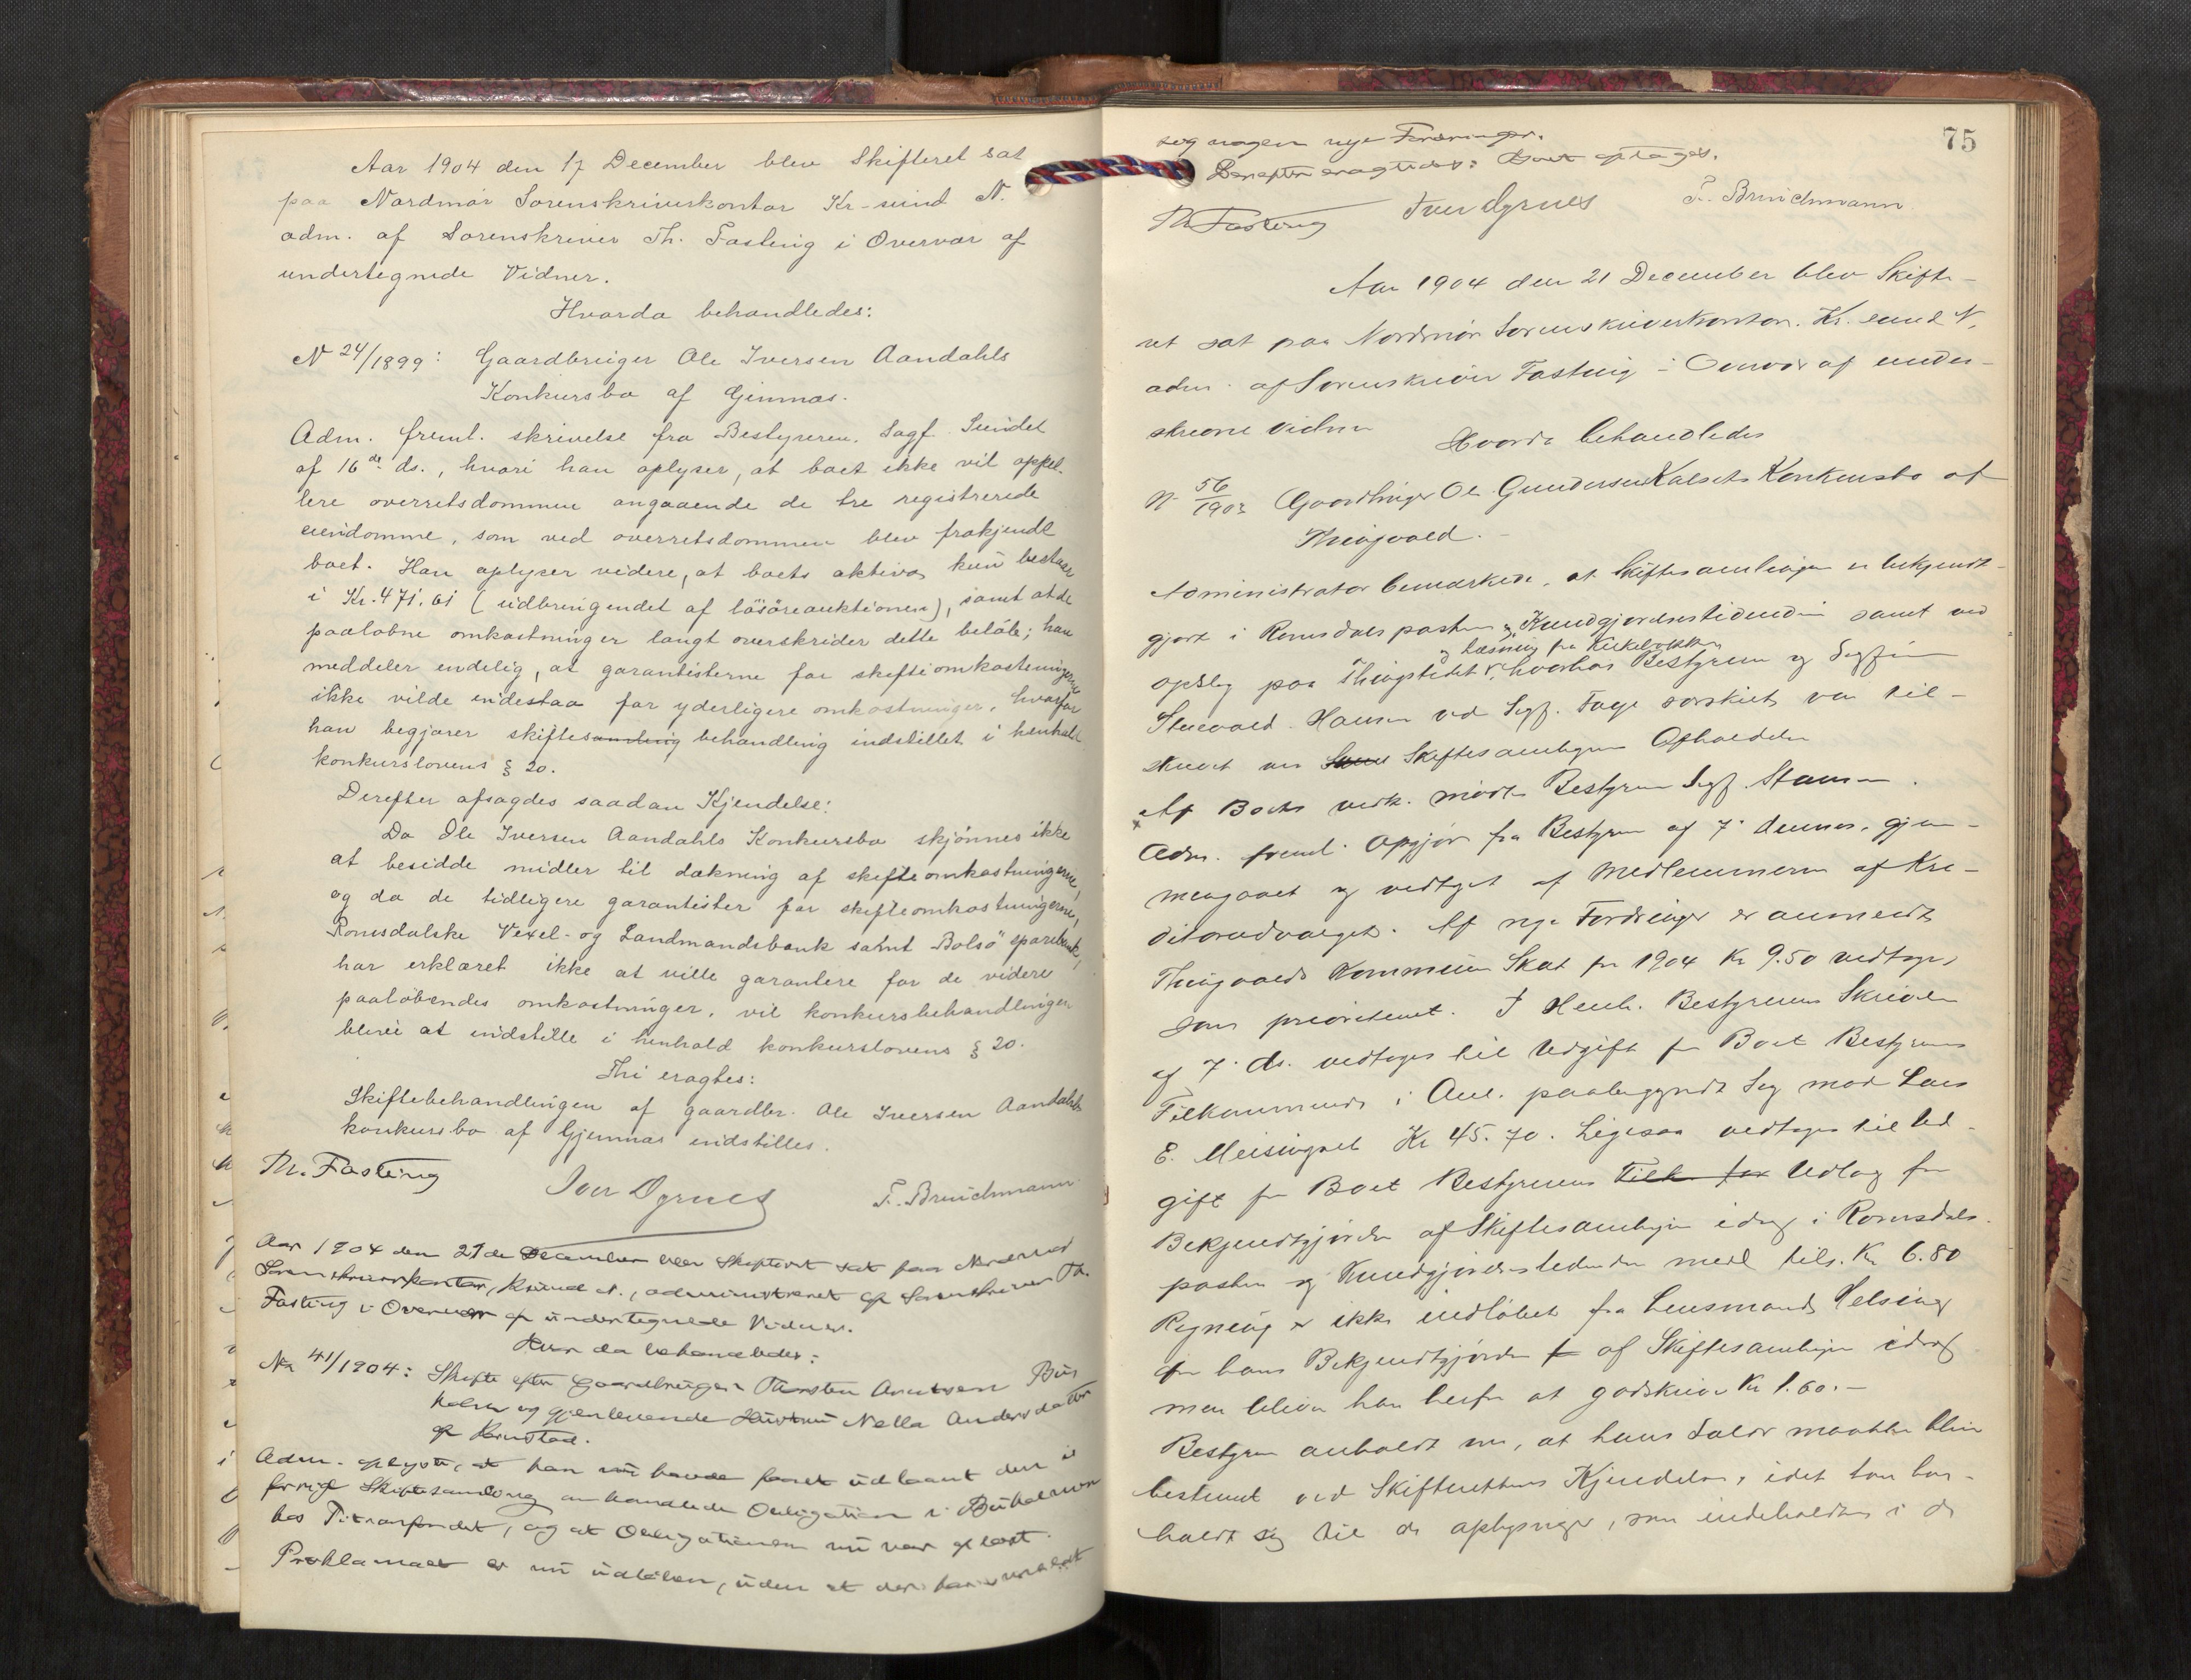 Aar 1904 den 17 December blev Skifteret sat
paa Nordmør Sorenskriverkontor Kr-sund N.
adm. af Sorenskriver Th. Fasting i Overvær af
undertegnede Vidner.
Hvorda behandledes:
N 24/1899: Gaardbruger Ole Iversen Aandahls
Konkursbo af Gimnæs.
Adm. freml. skrivelse fra Bestyreren. Sagf. Sundet
af 16de ds., hvori han oplyser, at boet ikke vil appel-
lere overretsdommen angaaende de tre registrerede
eiendomme, som ved overretsdommen blev frakjendt
boet. Han oplyser videre, at boets aktiva kun bestaar
i Kr. 471.61 (udbringendet af løsøreauktionen), samt at de
paaløbne omkostninger langt overskrider dette beløb; han
meddeler endelig, at garantisterne for skifteomkostningerne
ikke vilde indestaa for yderligere omkostninger, hvorfor
han begjærer skiftesamling behandling indstillet i henhold
konkurslovens § 20.
Derefter afsagdes saadan Kjendelse:
Da Ole Iversen Aandahls Konkursbo skjønnes ikke
at besidde midler til dækning af skifteomkostningerne,
og da de tidligere garantister for skifteomkostningerne,
Romsdalske Vexel- og Landmandsbank samt Bolsø sparebank,
har erklæret ikke at ville garantere for de videre
paaløbendes omkostninger, vil konkursbehandlingen
blive at indstille i henhold konkurslovens § 20.
Thi eragtes:
Skiftebehandlingen af gaardbr. Ole Iversen Aandahls
konkursbo af Gjemnæs indstilles.
Th. Fasting Iver Øgrues F. Brüichmann
Aar 1904 den 21de December blev Skifteret sat paa Nordmør
Sorenskriverkontor, Krsund N., administreret af Sorenskriver Th.
Fasting i Overvær af undertegnede Vidner.
Hvor da behandledes:
No 41/1904: Skifte efter Gaardbruger Thorsten Arntsen Bu-
holm og gjenlevende Hustru Nella Andersdatter
af
Adm. oplyste, at han nu havde faaet udlaant den i
forrige Skiftesamling omhandlede Obligation i Buholmen
hos, og at Obligationen nu var
Proklamaet er nu udløben, uden at der har meldt
seg nogen nye Fordringer.
Derefter eragtedes: Boet optages.
Th Fasting Iver Øgrues F. Brüichmann
75
Aar 1904 den 21 December blev Skifte-
ret sat paa Nordmør Sorenskriverkontor. Kr.sund N,
adm. af Sorenskriver Fasting i Overvær af under-
skrevne Vidner
Hvorda behandledes
N 56/1903 Gaardbruger Ole Gundersen Kalsets Konkursbo af
Thingvold.
Administrator bemærkede, at Skiftesamlingen er bekjendt-
gjort i Romsdalsposten og Kundgjørelsestidende samt ved
og læsning fra Kirkebakken
opslag paa Thingstedet, hvorhos Bestyreren og Sagfør
Hansen ved Sagf. Fage særskilt var til-
skrevet om Skiftesamlingens Afholdelse
Af Boets vedk. mødte Bestyreren Sagf.
Adm. freml. Opgjør fra Bestyreren af 7. dennes, gjen-
nemgaaet og vedtaget af Medlemmerne af Kre-
ditorudvalget. Af nye Fordringer er anmeldt
Thingvolds Kommune Skat for 1904 Kr 9.50 vedtages
som prioriteret. I Henh. Bestyrerens Skrivelse
af 7. ds. vedtages til Udgift for Boet Bestyrerens
Tilkommende i Anl. paabegyndt Sag mod Lars
E. Meisingset Kr 45.70. Ligesaa vedtages til Ud-
gift for Boet Bestyrerens Tilk for Udlæg for
Bekjendtgjørelse af Skiftesamlingen idag i Romsdals-
posten og Kundgjørelsestidenden med tils. Kr 6.80
Regning er ikke indløbet fra Lensmand Helsing
for hans Bekjendtgjørelse f af Skiftesamlingen idag
men bliver han herfor at godskrive Kr 1.60.-
Bestyreren anholdt om, at hans Salær maatte blive
bestemt ved Skifterettens Kjendelse, idet han hen-
holdt sig til de oplysninger, som indeholdes i de